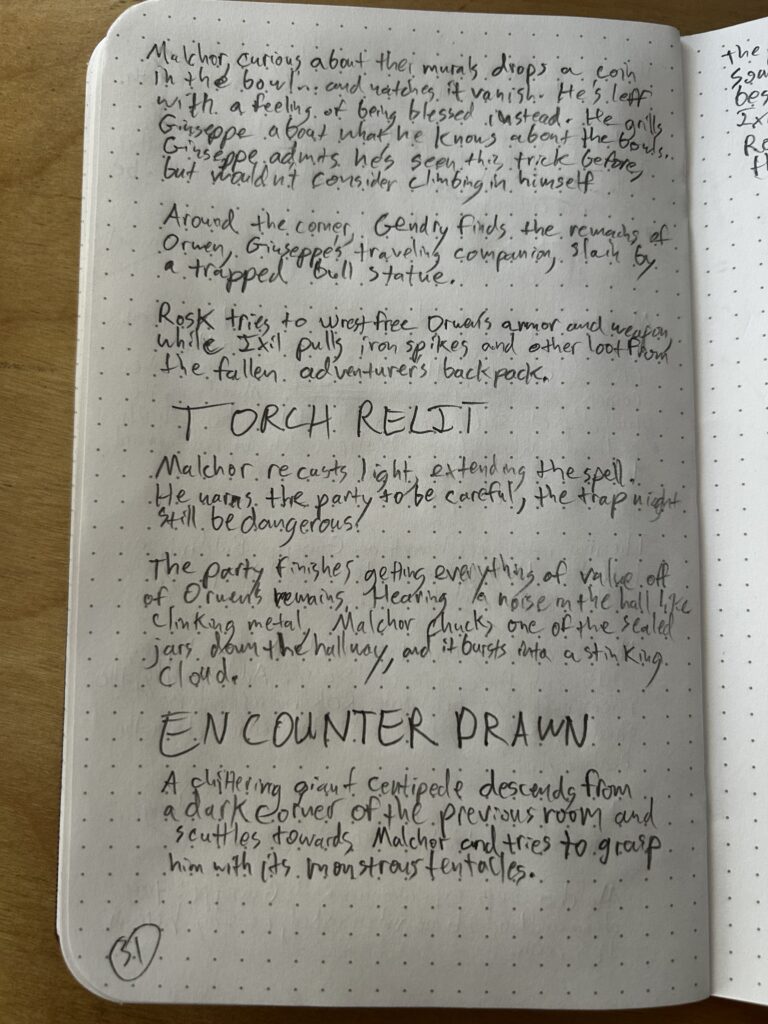 Malchor, curious about their murals drops a coin
in the bowl... and watches it vanish. He's left
with a feeling of being blessed instead. He grills
Giuseppe about what he knows about the bowls.
Giuseppe admits he's seen this trick before,
but wouldn't consider climbing in himself
Around the corner, Gendry finds the remains of
Orwen, Giuseppe's traveling companion, slain by
a trapped bull statue.
Rosk tries to wrest free Orwen's armor and weapon,
while Ixil pulls iron spikes and other loot from
the fallen adventurer's backpack.
TORCH RELIT
Malchor recasts light, extending the spell.
He warns the party to be careful, the trap might
still be dangerous!
The party finishes getting everything of value off
of Orwen's remains. Hearing a noise in the hall like
clinking metal, Malchor chucks one of the sealed
jars down the hallway, and it bursts into a stinking
cloud.
ENCOUNTER DRAWN
A glittering giant centipede descends from
a dark corner of the previous room and
scuttles towards Malchor and tries to grasp
him with its monstrous tentacles.
31
the
bes
Ixi
Re
th